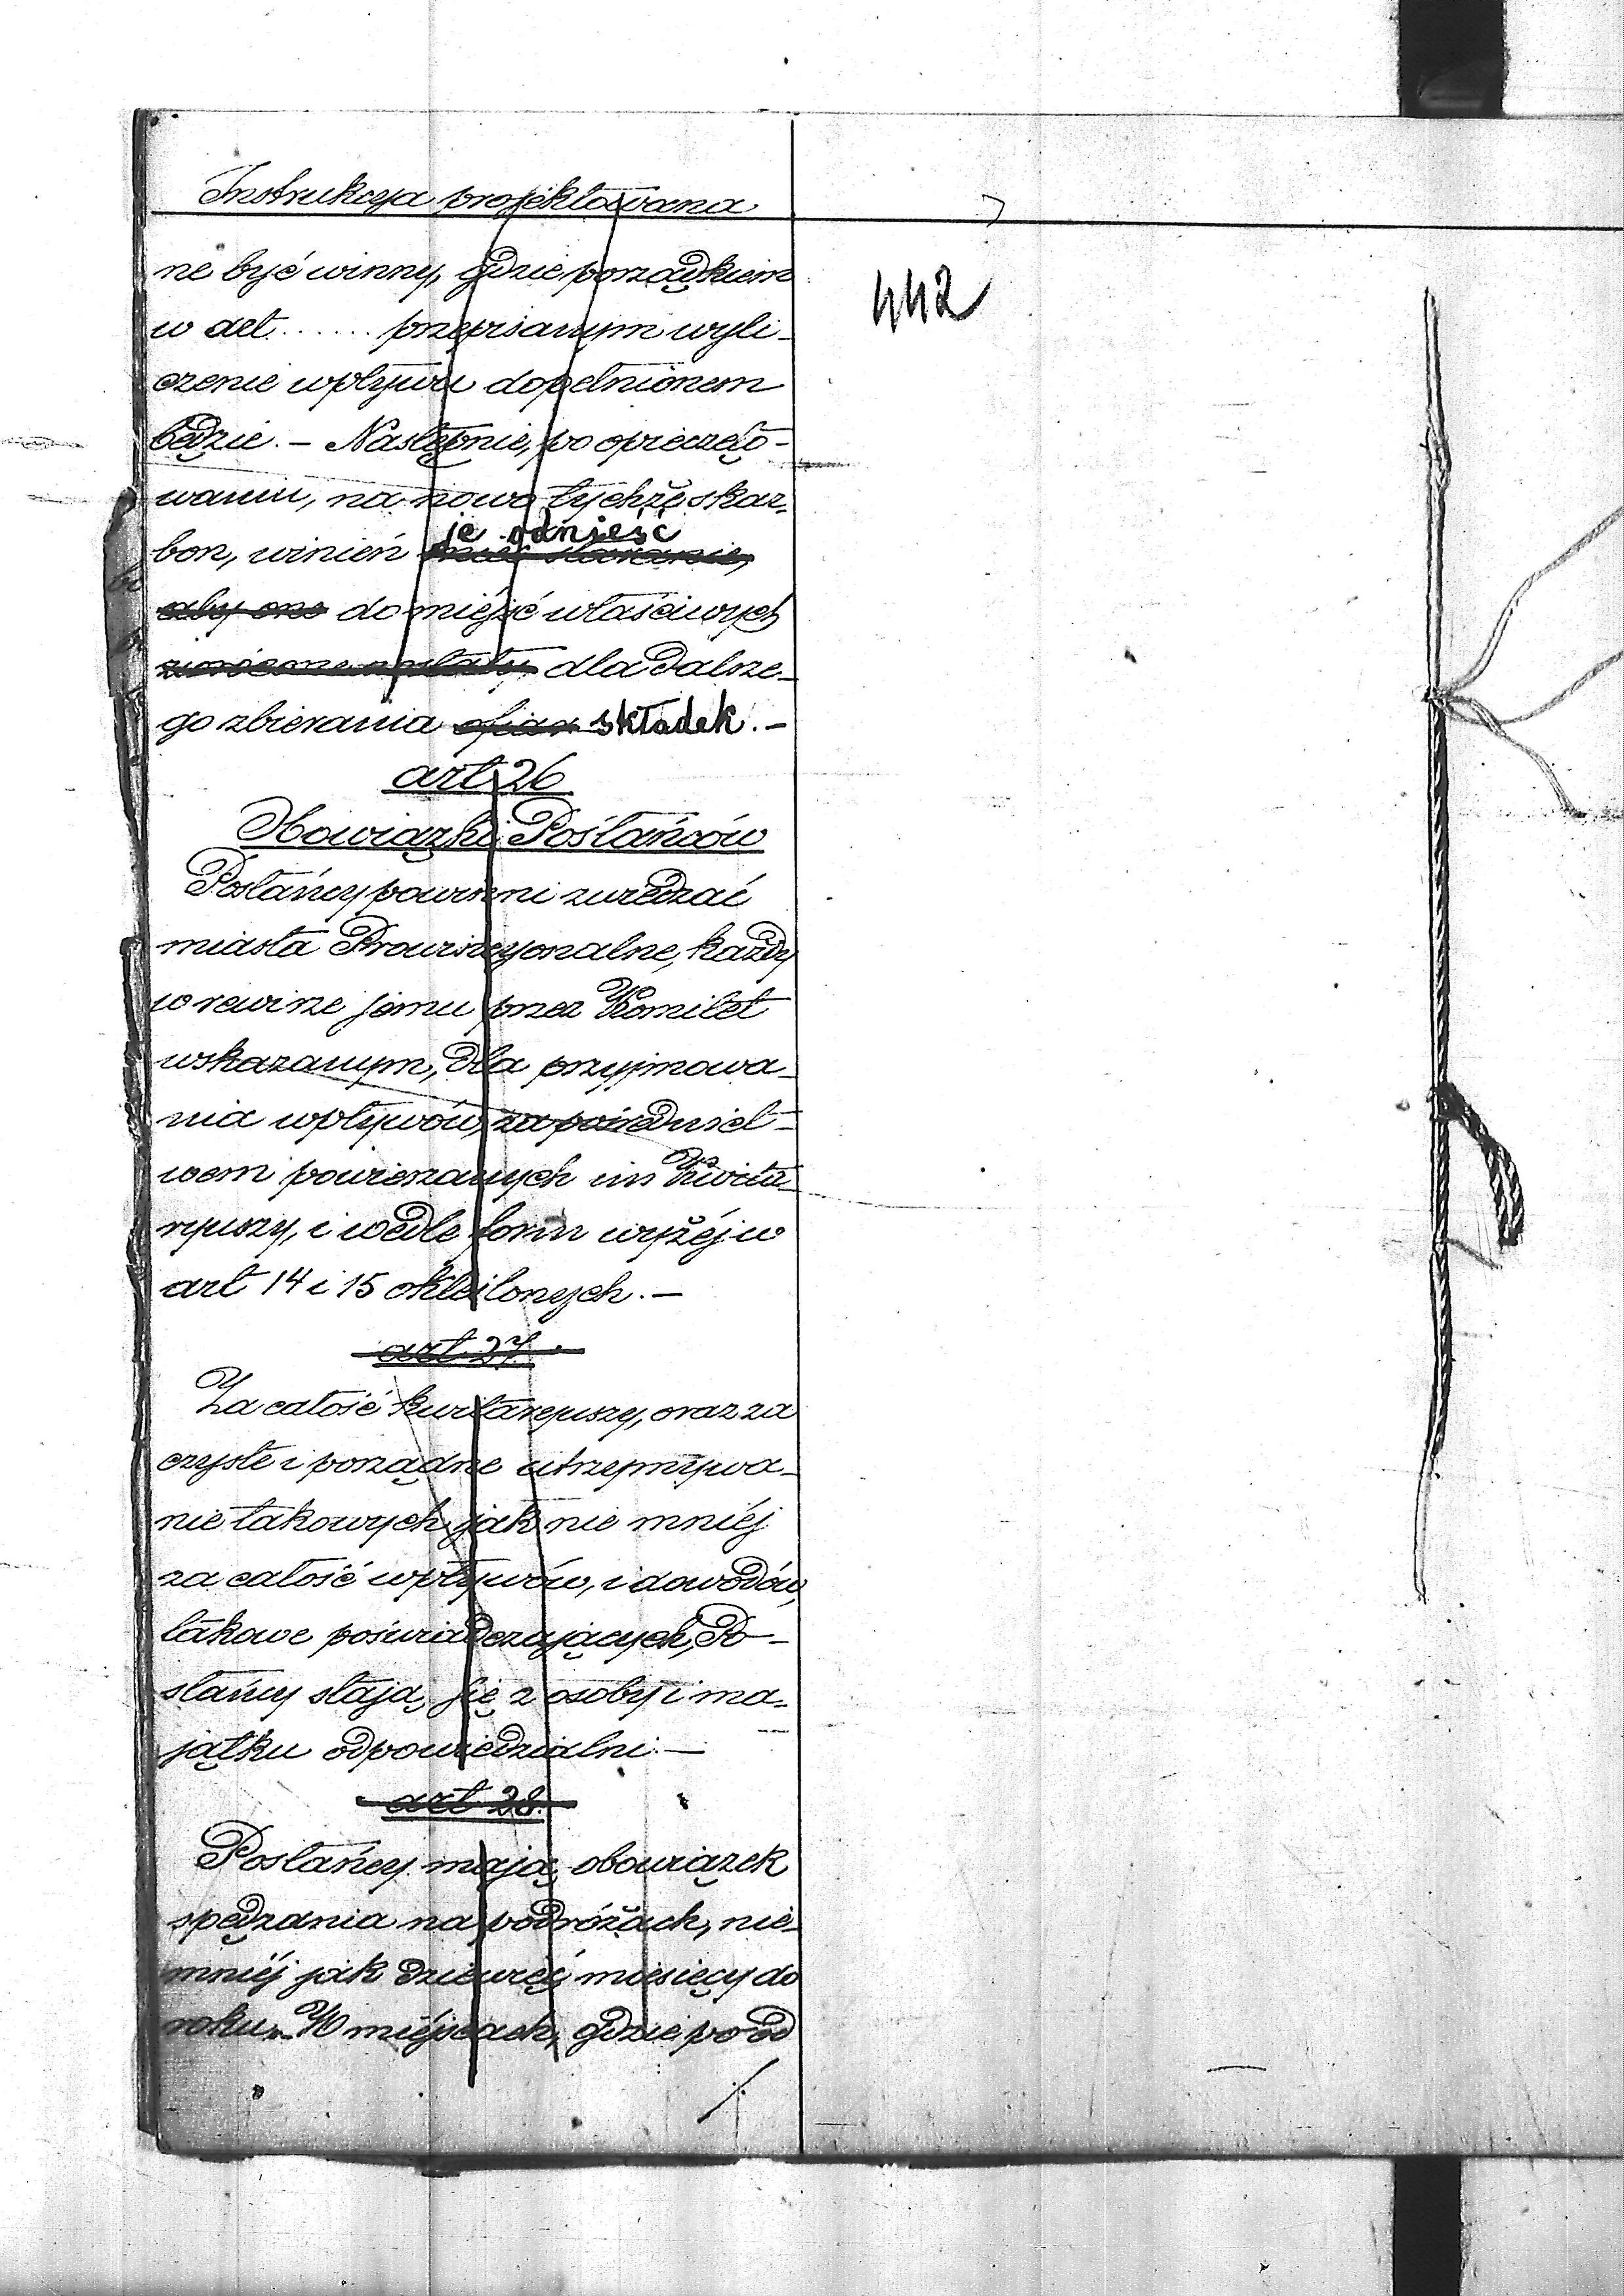 Instrukcya projektowana
ne być winny, gdzie porządkiem
w art ...... przepisanym wyli-
czenie wpływu dopełnionem
będzie. – Następnie, po opieczęto-
waniu, na nowo tychże skar-
je odnieść
bon, winien mieć staranie,
aby one do miejsc właściwych
zwrócone zostały dla dalsze-
go zbierania ofiar składek. –
art 26
Obowiązki Posłańców
Posłańcy powinni zwiedzać
miasta Prowincyonalne, każdy
w rewirze jemu przez Komitet
wskazanym, dla przyjmowa-
nia wpływów, za pośrednict-
wem powierzanych im Kwita-
ryuszy, i wedle form wyżéj w
art 14 i 15 określonych. –
art 27.
Za całość kwitaryuszy, oraz za
czyste i porządne utrzymywa-
nie takowych jak nie mniéj
za całość wpływów, i dowodów,
takowe poświadczających, Po-
słańcy stają się z osoby i ma-
jątku odpowiedzialni. –
art 28.
Posłańcy mają obowiązek
spędzania na podróżach, nie-
mniéj jak dziewięć miesięcy do
roku. – W miéjscach, gdzie po od
442